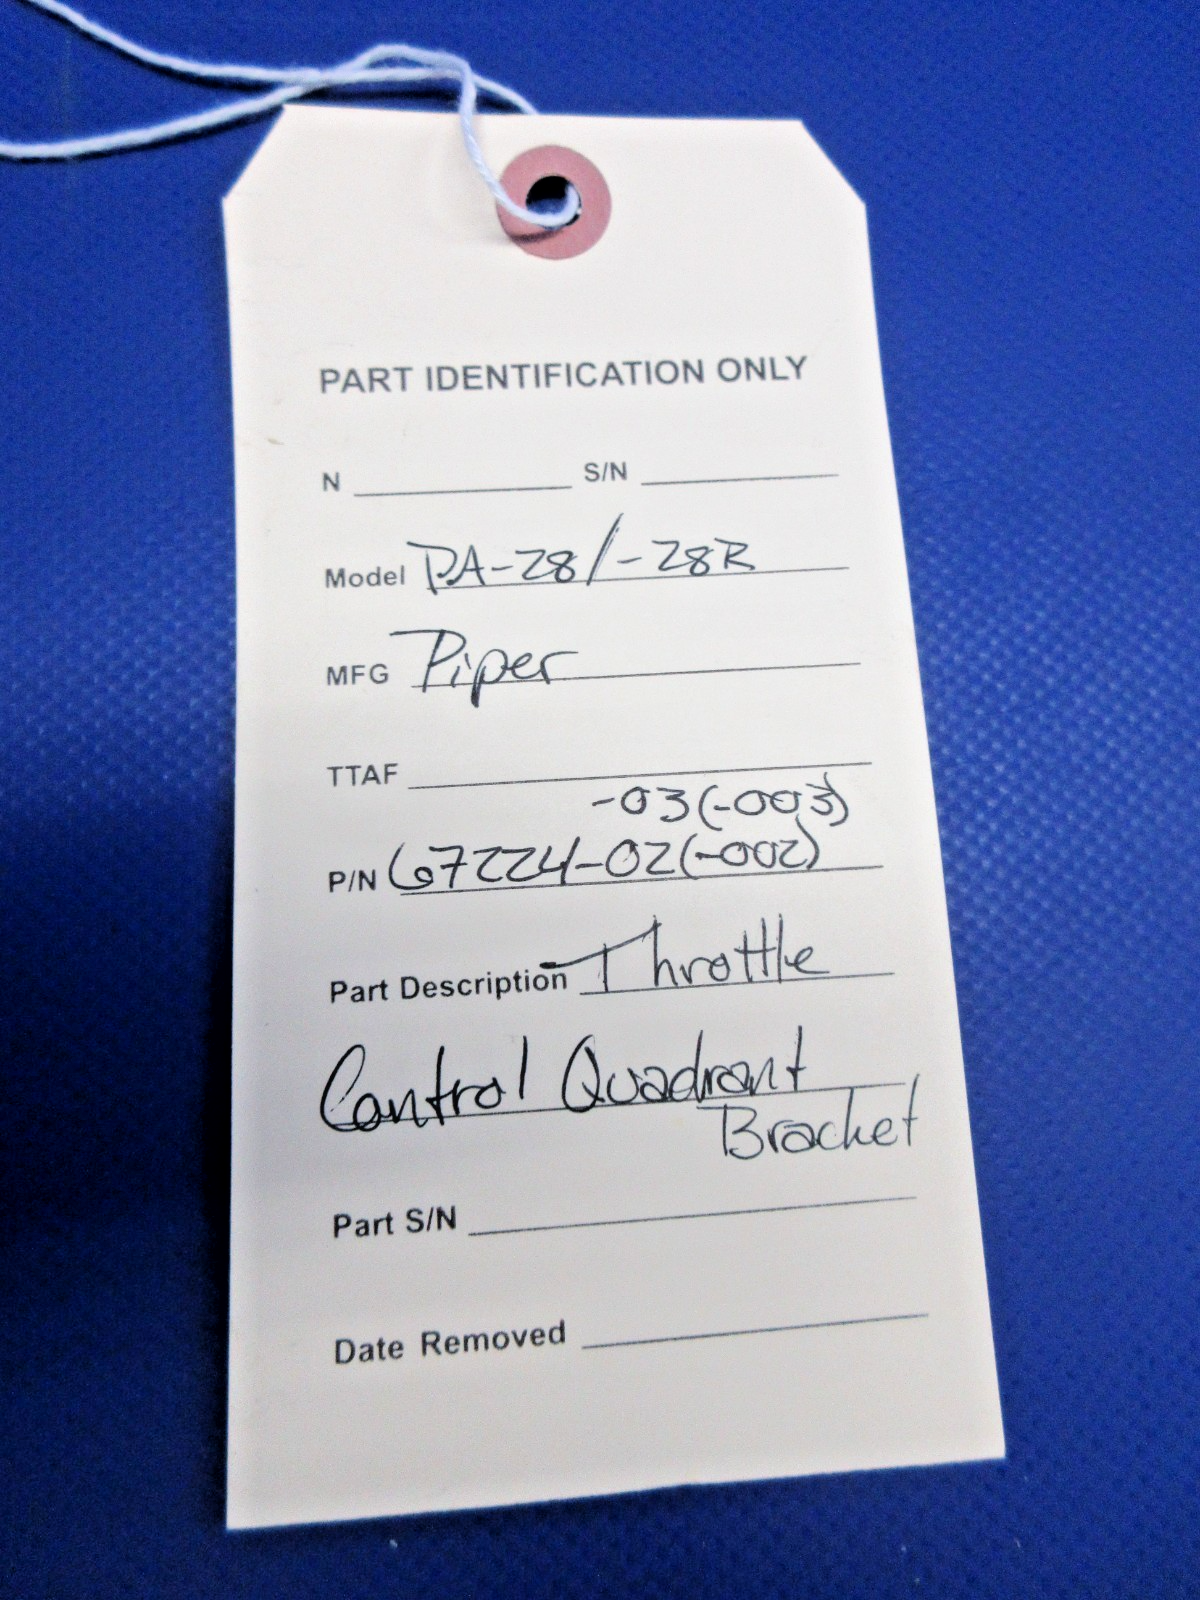 PART IDENTIFICATION ONLY
N S/N
Model PA-28/-28R
MFG Piper
TTAF
-03(-003)
P/N 67224-02(-002)
Part Description Throttle
Control Quadrant
Bracket
Part S/N
Date Removed